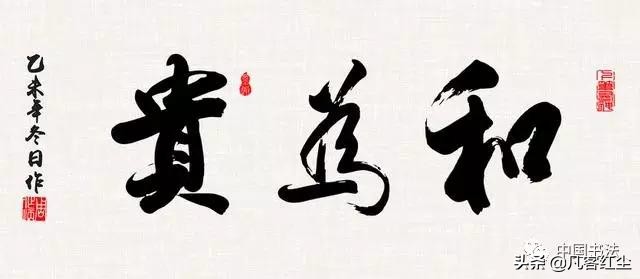 和為貴
乙未年冬日作
中国书法
头条@凡客红尘